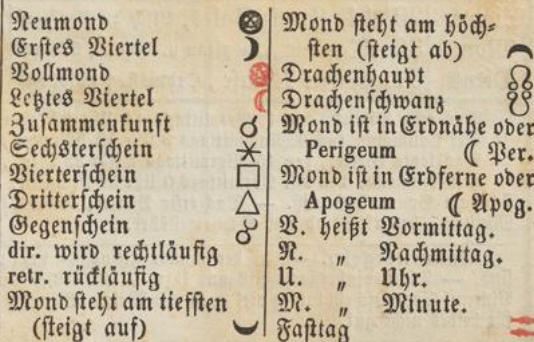 Neumond
Erstes Viertel ☽
Vollmond
Letztes Viertel ☾
Zusammenkunft ☌
Sechsterschein ⚹
Vierterschein □
Dritterschein △
Gegenschein ☍
dir. wird rechtläufig
retr. rückläufig
Mond steht am tiefsten
(steigt auf)
Mond steht am höch=
sten (steigt ab)
Drachenhaupt ☊
Drachenschwanz ☋
Mond ist in Erdnähe oder
Perigeum ☾ Per.
Mond ist in Erdferne oder
Apogeum ☾ Apog.
V. heißt Vormittag.
N. „ Nachmittag.
U. „ Uhr.
M. „ Minute.
Fasttag